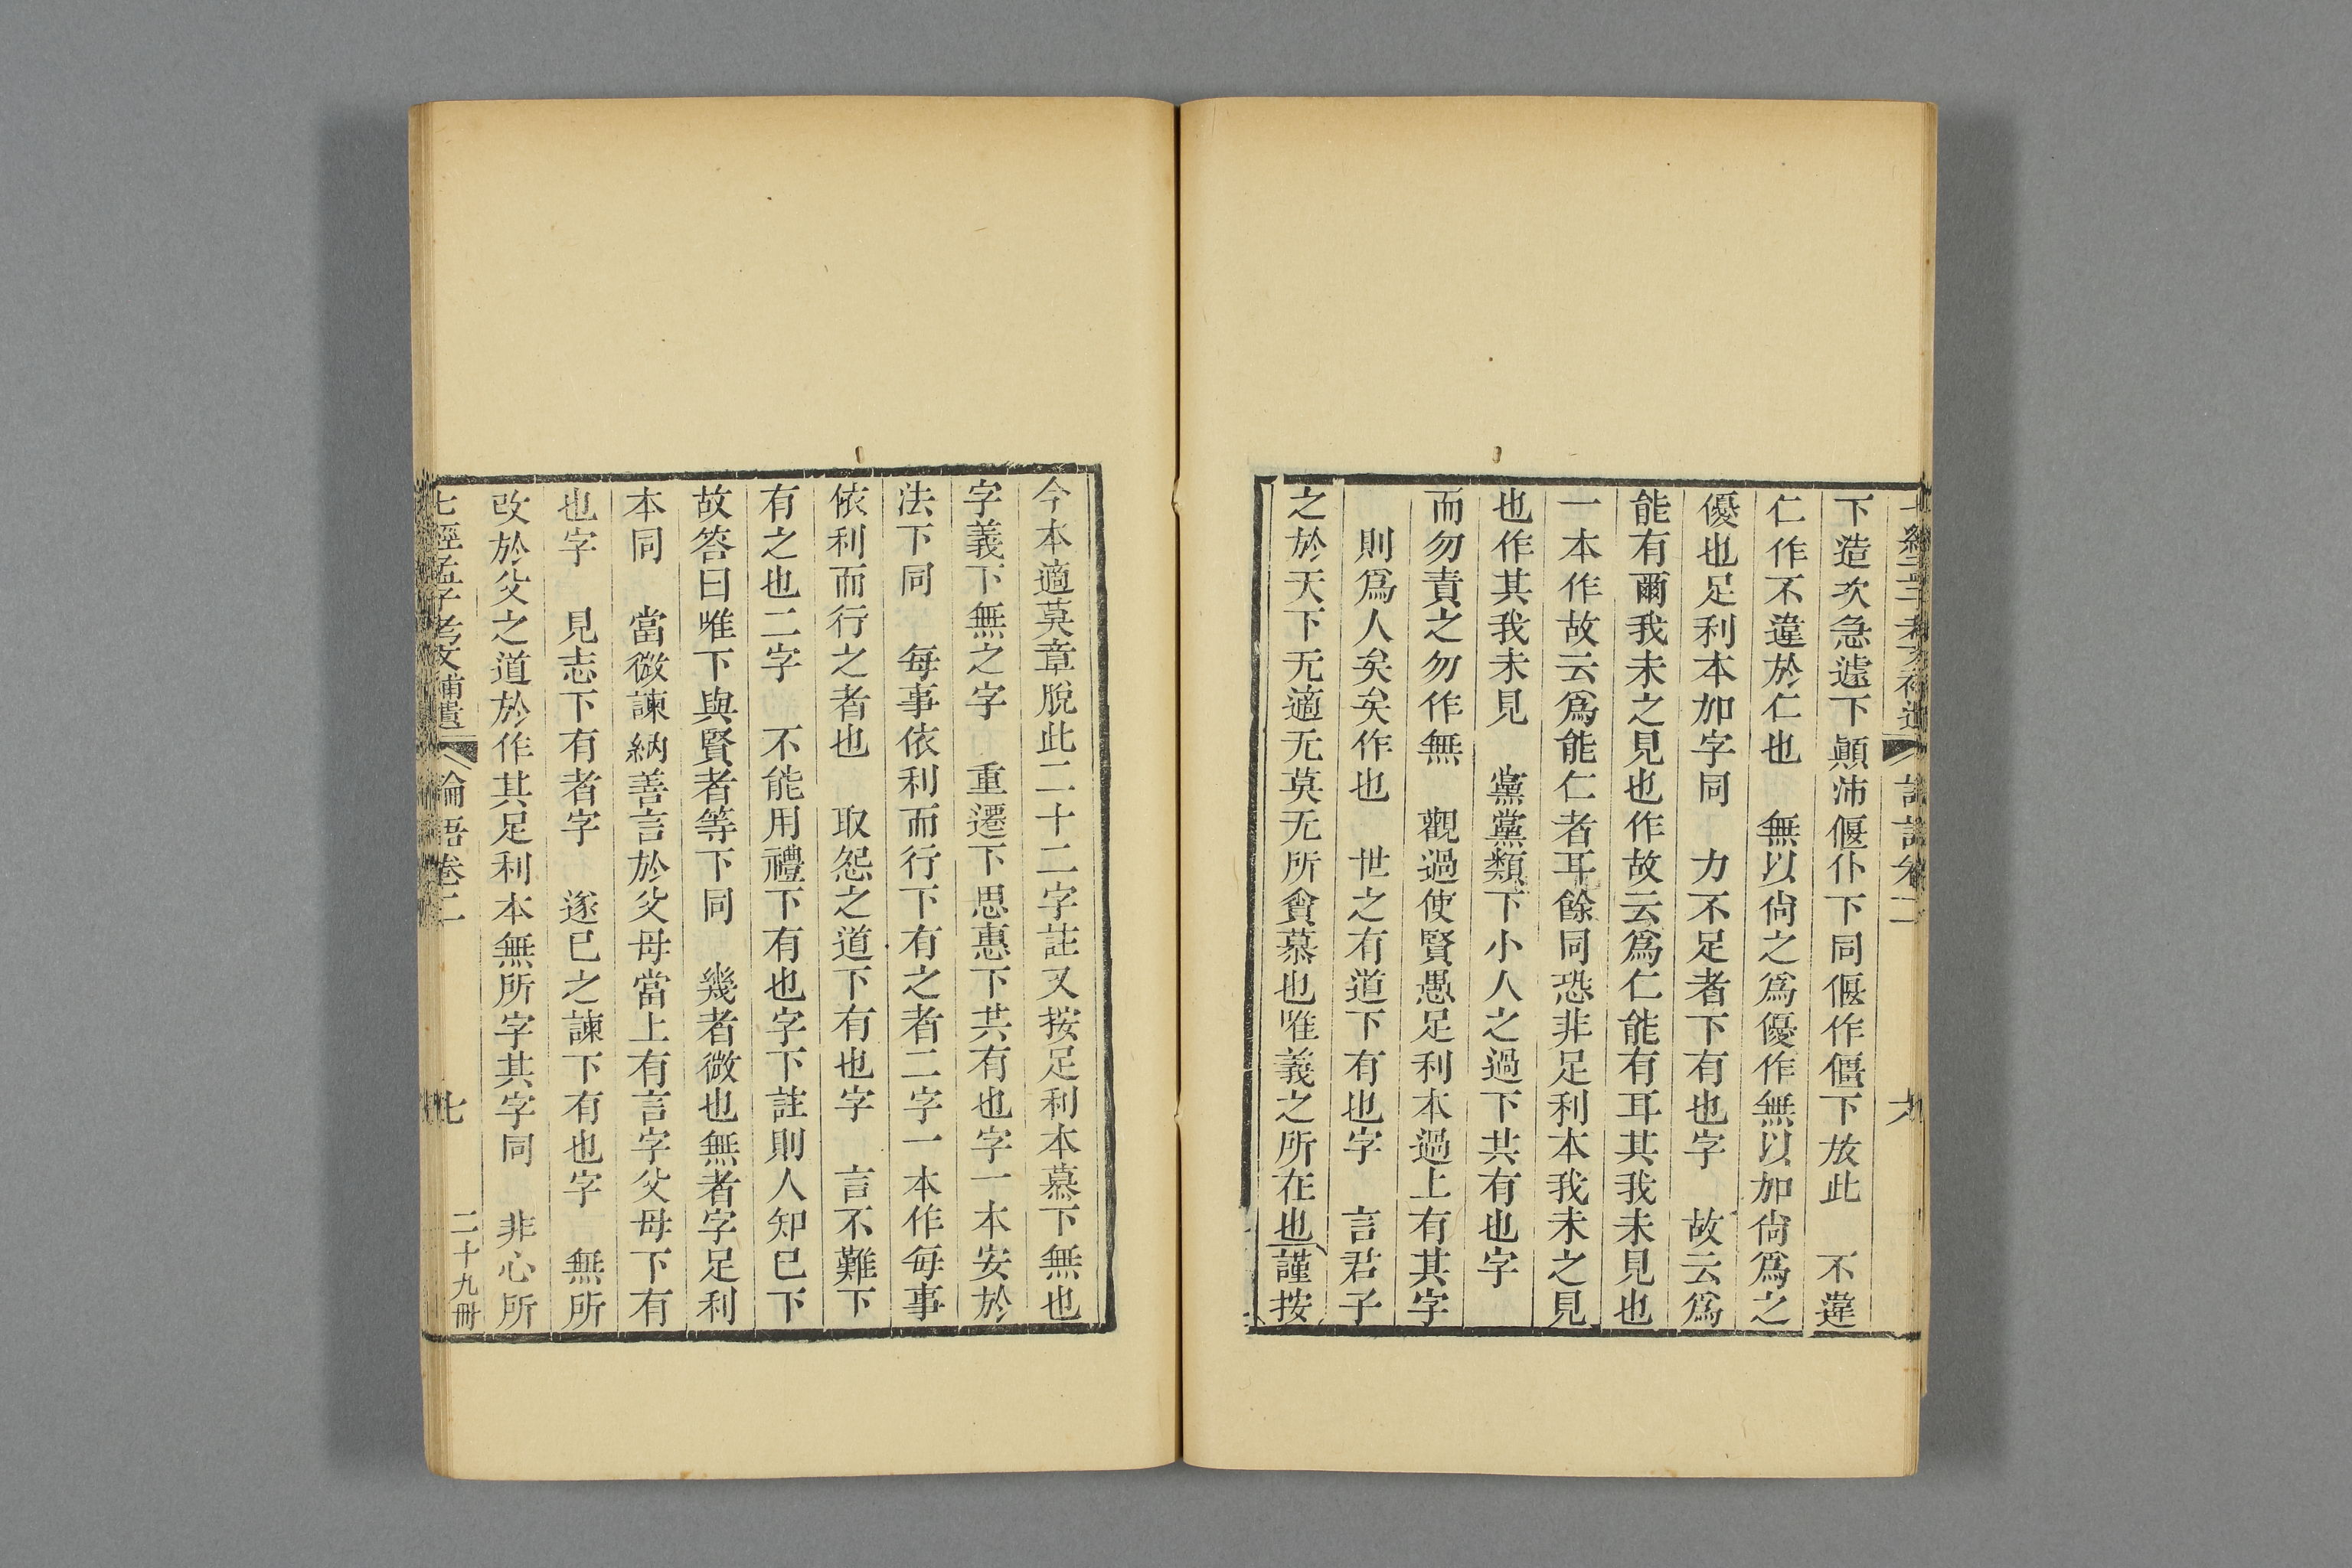 下造次急遽下 顚沛偃仆下同偃作僵下放此 不違
仁作不違於仁也 無以尙之爲優作無以加尙爲之
優也足利本加字同 力不足者下有也字 故云爲
能有爾我未之見也作故云爲仁能有耳其我未見也
一本作故云爲能仁者耳餘同恐非足利本我未之見
也作其我未見 黨黨類下小人之過下共有也字
而勿責之勿作無 觀過使賢愚足利本過上有其字
則爲人矣矣作也 世之有道下有也字 言君子
之於天下无適无莫无所貪慕也唯義之所在也謹按
今本適莫章脫此二十二字註又按足利本慕下無也
字義下無之字 重遷下思惠下共有也字一本安於
法下同 每事依利而行下有之者二字一本作每事
依利而行之者也 取怨之道下有也字 言不難下
有之也二字 不能用禮下有也字下註則人知已下
故答曰唯下與賢者等下同 幾者微也無者字足利
本同 當微諫納善言於父母當上有言字父母下有
也字 見志下有者字 遂已之諫下有也字 無所
改於父之道於作其足利本無所字其字同 非心所
七經孟子考文補遺 論語卷二 七 二十九冊